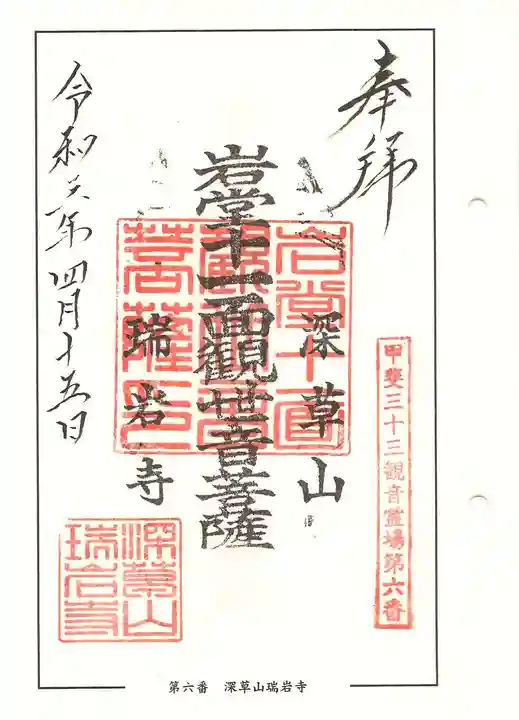 奉拝
甲斐三十三観音霊場第六番
深草山
岩堂十一面觀世音菩薩
瑞岩寺
令和六年四月十五日
深草山
瑞岩寺
第六番 深草山瑞岩寺